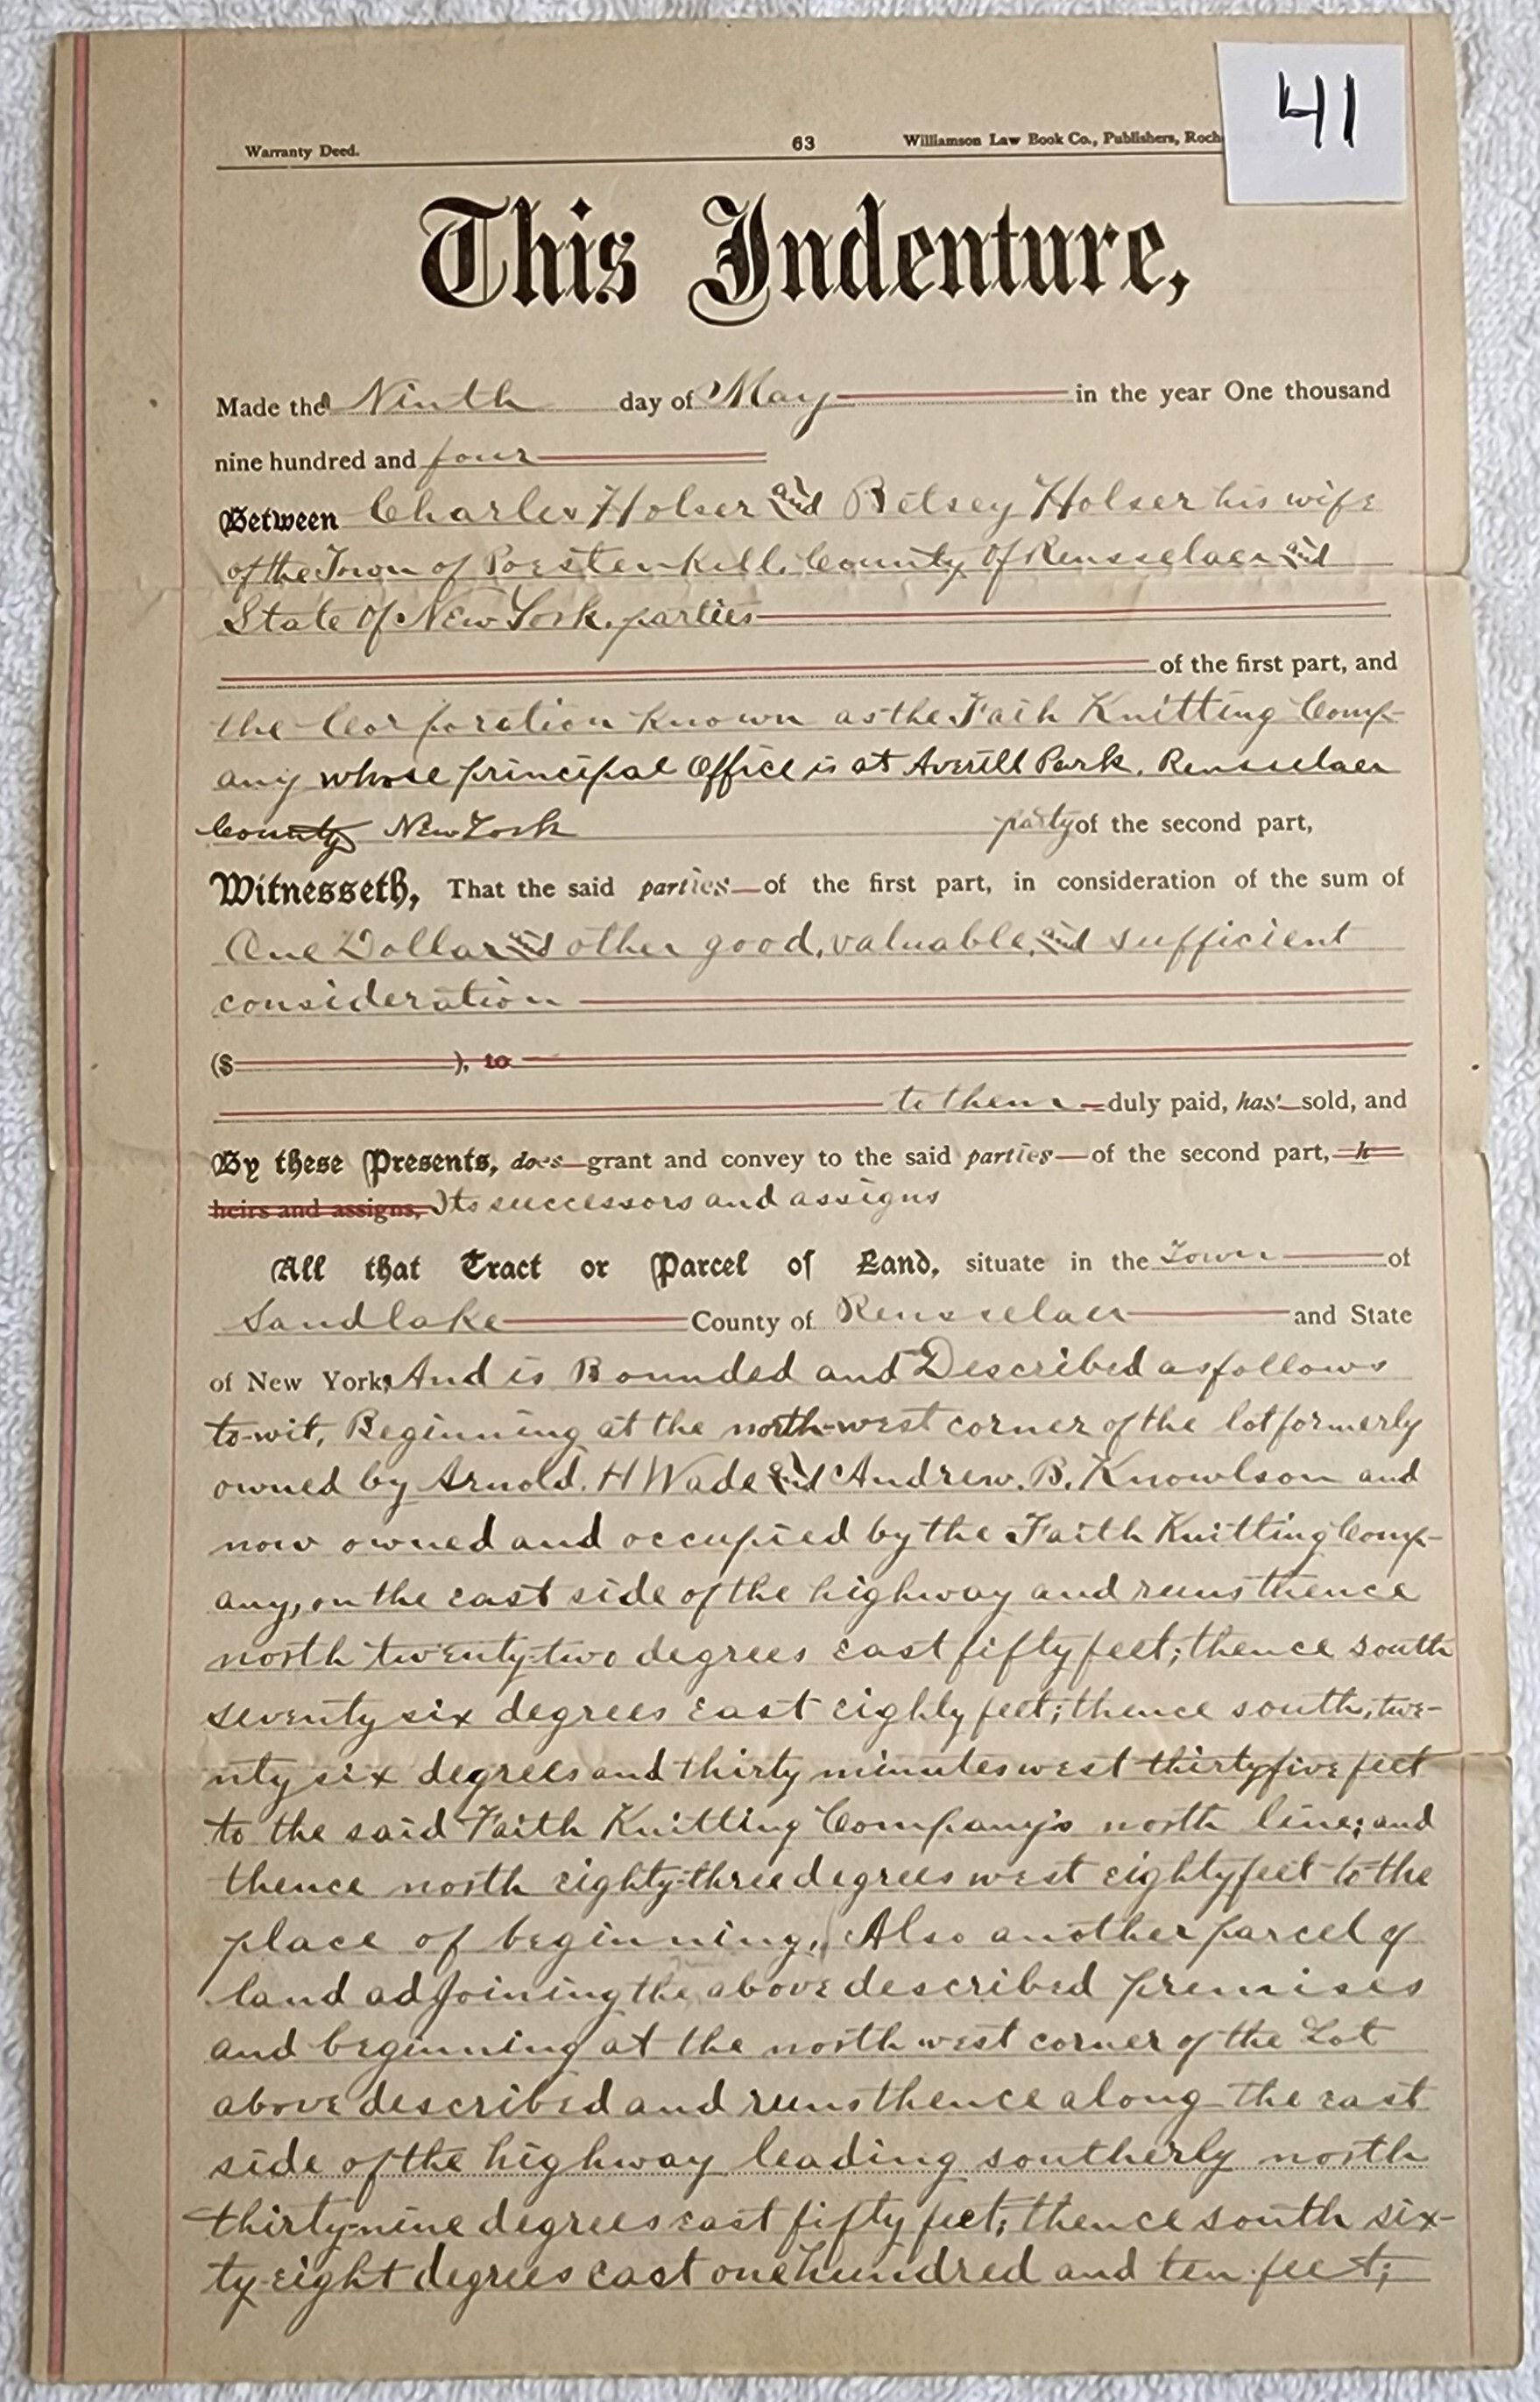 41
Warranty Deed. 63 Williamson Law Book Co., Publishers, Roch
This Indenture,
Made the Ninth day of May in the year One thousand
nine hundred and four
Between Charles Holser and Betsey Holser his wife
of the Town of Poestenkill, County Of Rensselaer and
State Of New York, parties
of the first part, and
the Corporation known as the Faih Knitting Comp-
any whose principal Office is at Averill Park, Rensselaer
County New York party of the second part,
Witnesseth, That the said parties of the first part, in consideration of the sum of
One Dollar and other good, valuable, and sufficient
consideration
($ ), to
to them duly paid, has sold, and
By these Presents, does grant and convey to the said parties of the second part, h
heirs and assigns, Its successors and assigns
All that Tract or Parcel of Land, situate in the Town of
Sandlake County of Rensselaer and State
of New York, And is Bounded and Described as follows
to-wit, Beginning at the north-west corner of the lot formerly
owned by Arnold. H Wade and Andrew. B. Knowlson and
now owned and occupied by the Faith Knitting Comp-
any, on the east side of the highway and runs thence
north twenty-two degrees east fifty feet; thence south
seventy six degrees east eighty feet; thence south, twe-
nty six degrees and thirty minutes west thirty five feet
to the said Faith Knitting Company's north line; and
thence north eighty-three degrees west eighty feet to the
place of beginning. Also another parcel of
land adjoining the above described premises
and beginning at the north west corner of the Lot
above described and runs thence along the east
side of the highway leading southerly north
thirty-nine degrees east fifty feet; thence south six-
ty-eight degrees east one hundred and ten feet;